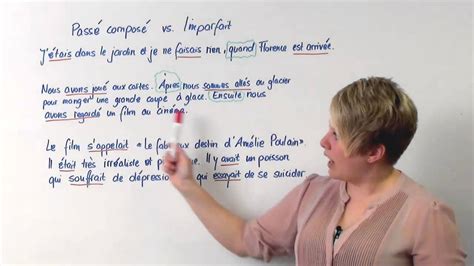 Passé composé vs. Imparfait
J'étais dans le jardin et je ne faisais rien, quand Florence est arrivée.
Nous avons joué aux cartes. Après nous sommes allés au glacier
pour manger une grande coupe à glace. Ensuite nous
avons regardé un film au cinéma.
Le film s'appelait « le fabuleux destin d'Amélie Poulain ».
Il était très irréaliste et Il y avait un poisson
qui souffrait de dépression qui essayait de se suicider.